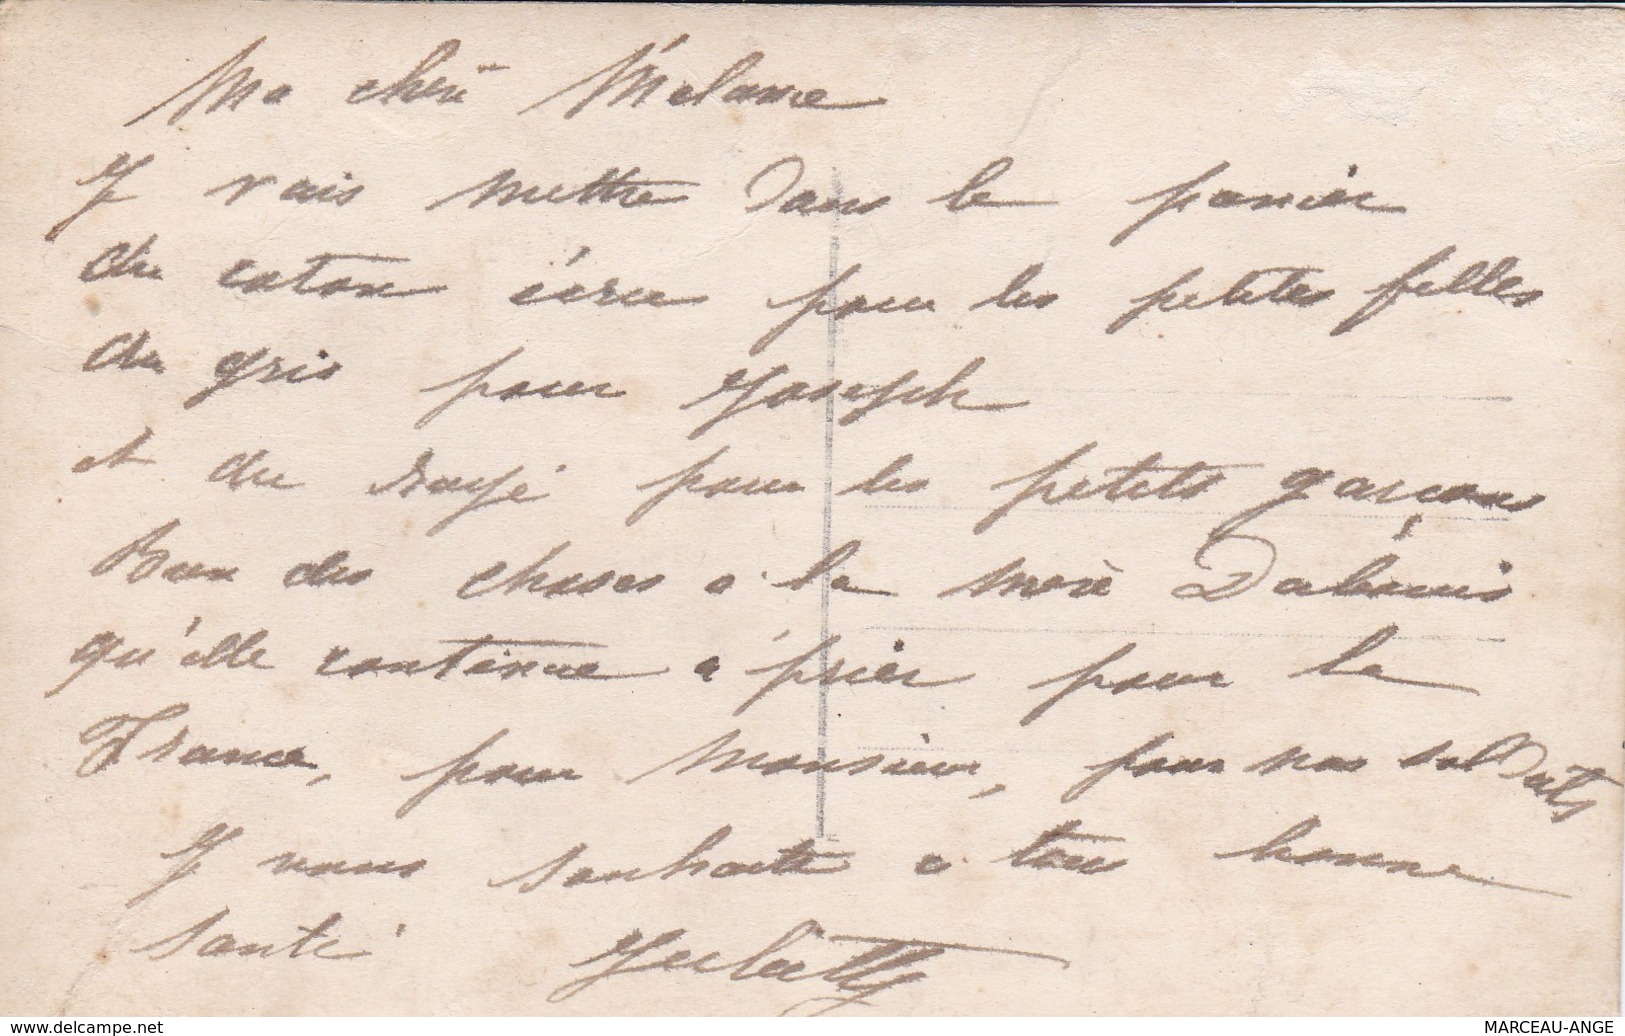 Ma chère Mélanie
Je vais mettre dans le panier
du coton écru pour les petites filles
du gris pour Joseph
et du rayé pour les petits garçons
Bien des choses à la mère
qu'elle continue à prier pour la
France, pour Monsieur, pour nos soldats
Je vous souhaite à tous bonne
santé
www.delcampe.net
MARCEAU-ANGE